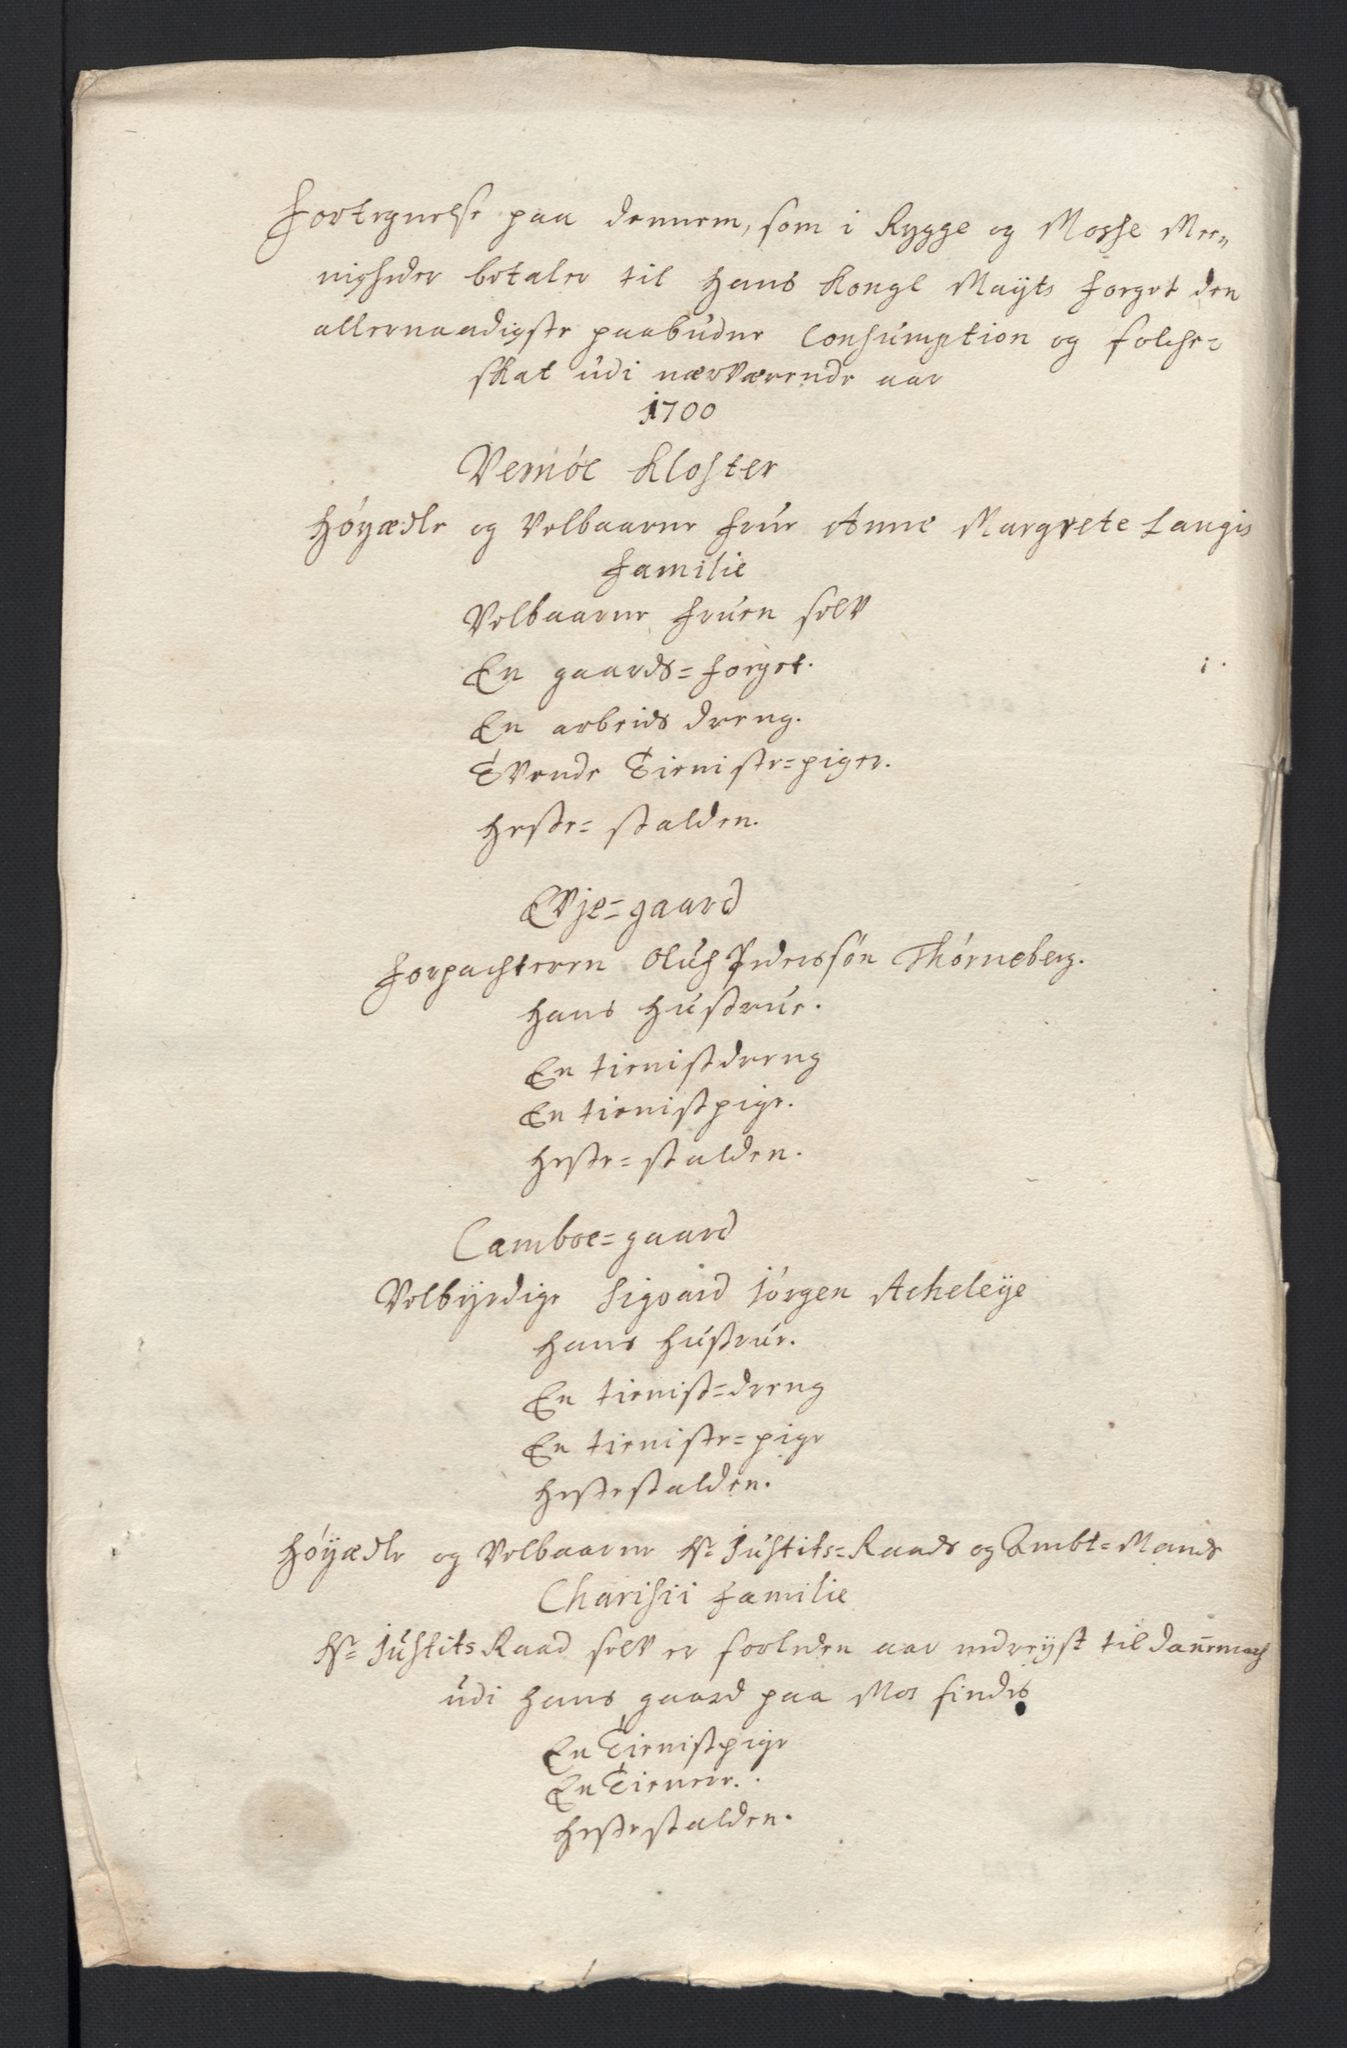 Fortegnelse paa dennem, som i Rygge og Mosse Mee„
nigheder betaler til Hans Kongl Mayts Foeget den
allernaadigste paabudne Consumption og folche=
skat udi nærværende aar
1700
Vernöe Kloster
Höyædle og Velbaarne Frue Anne Margrete Langis
Familie
Velbaarne Fruen selv
En gaards=foeget.
En arbeids dreng.
Tvende Tieniste=piger.
Heste=stalden.
Evje=gaard
Forpachteren Oluf Pederssön Thörneberg.
Hans Hustrue.
En tienistdreng
En tienistpige.
Heste=stalden.
Camboe=gaard
Velbyrdige Sigvard Jörgen Acheleÿe
Hans Hustrue.
En tienist=dreng
En tieniste=pige
Hestestalden.
Höÿædle og Velbaarne Hr Justits=Raads og Ambt=Mands
Charisii Familie
Hr Justits Raad selv er forleden aar nedreÿst til Danemach
udi Hans gaard paa Mos findis
En Tienistpige
En Tienere.
Hestestalden.